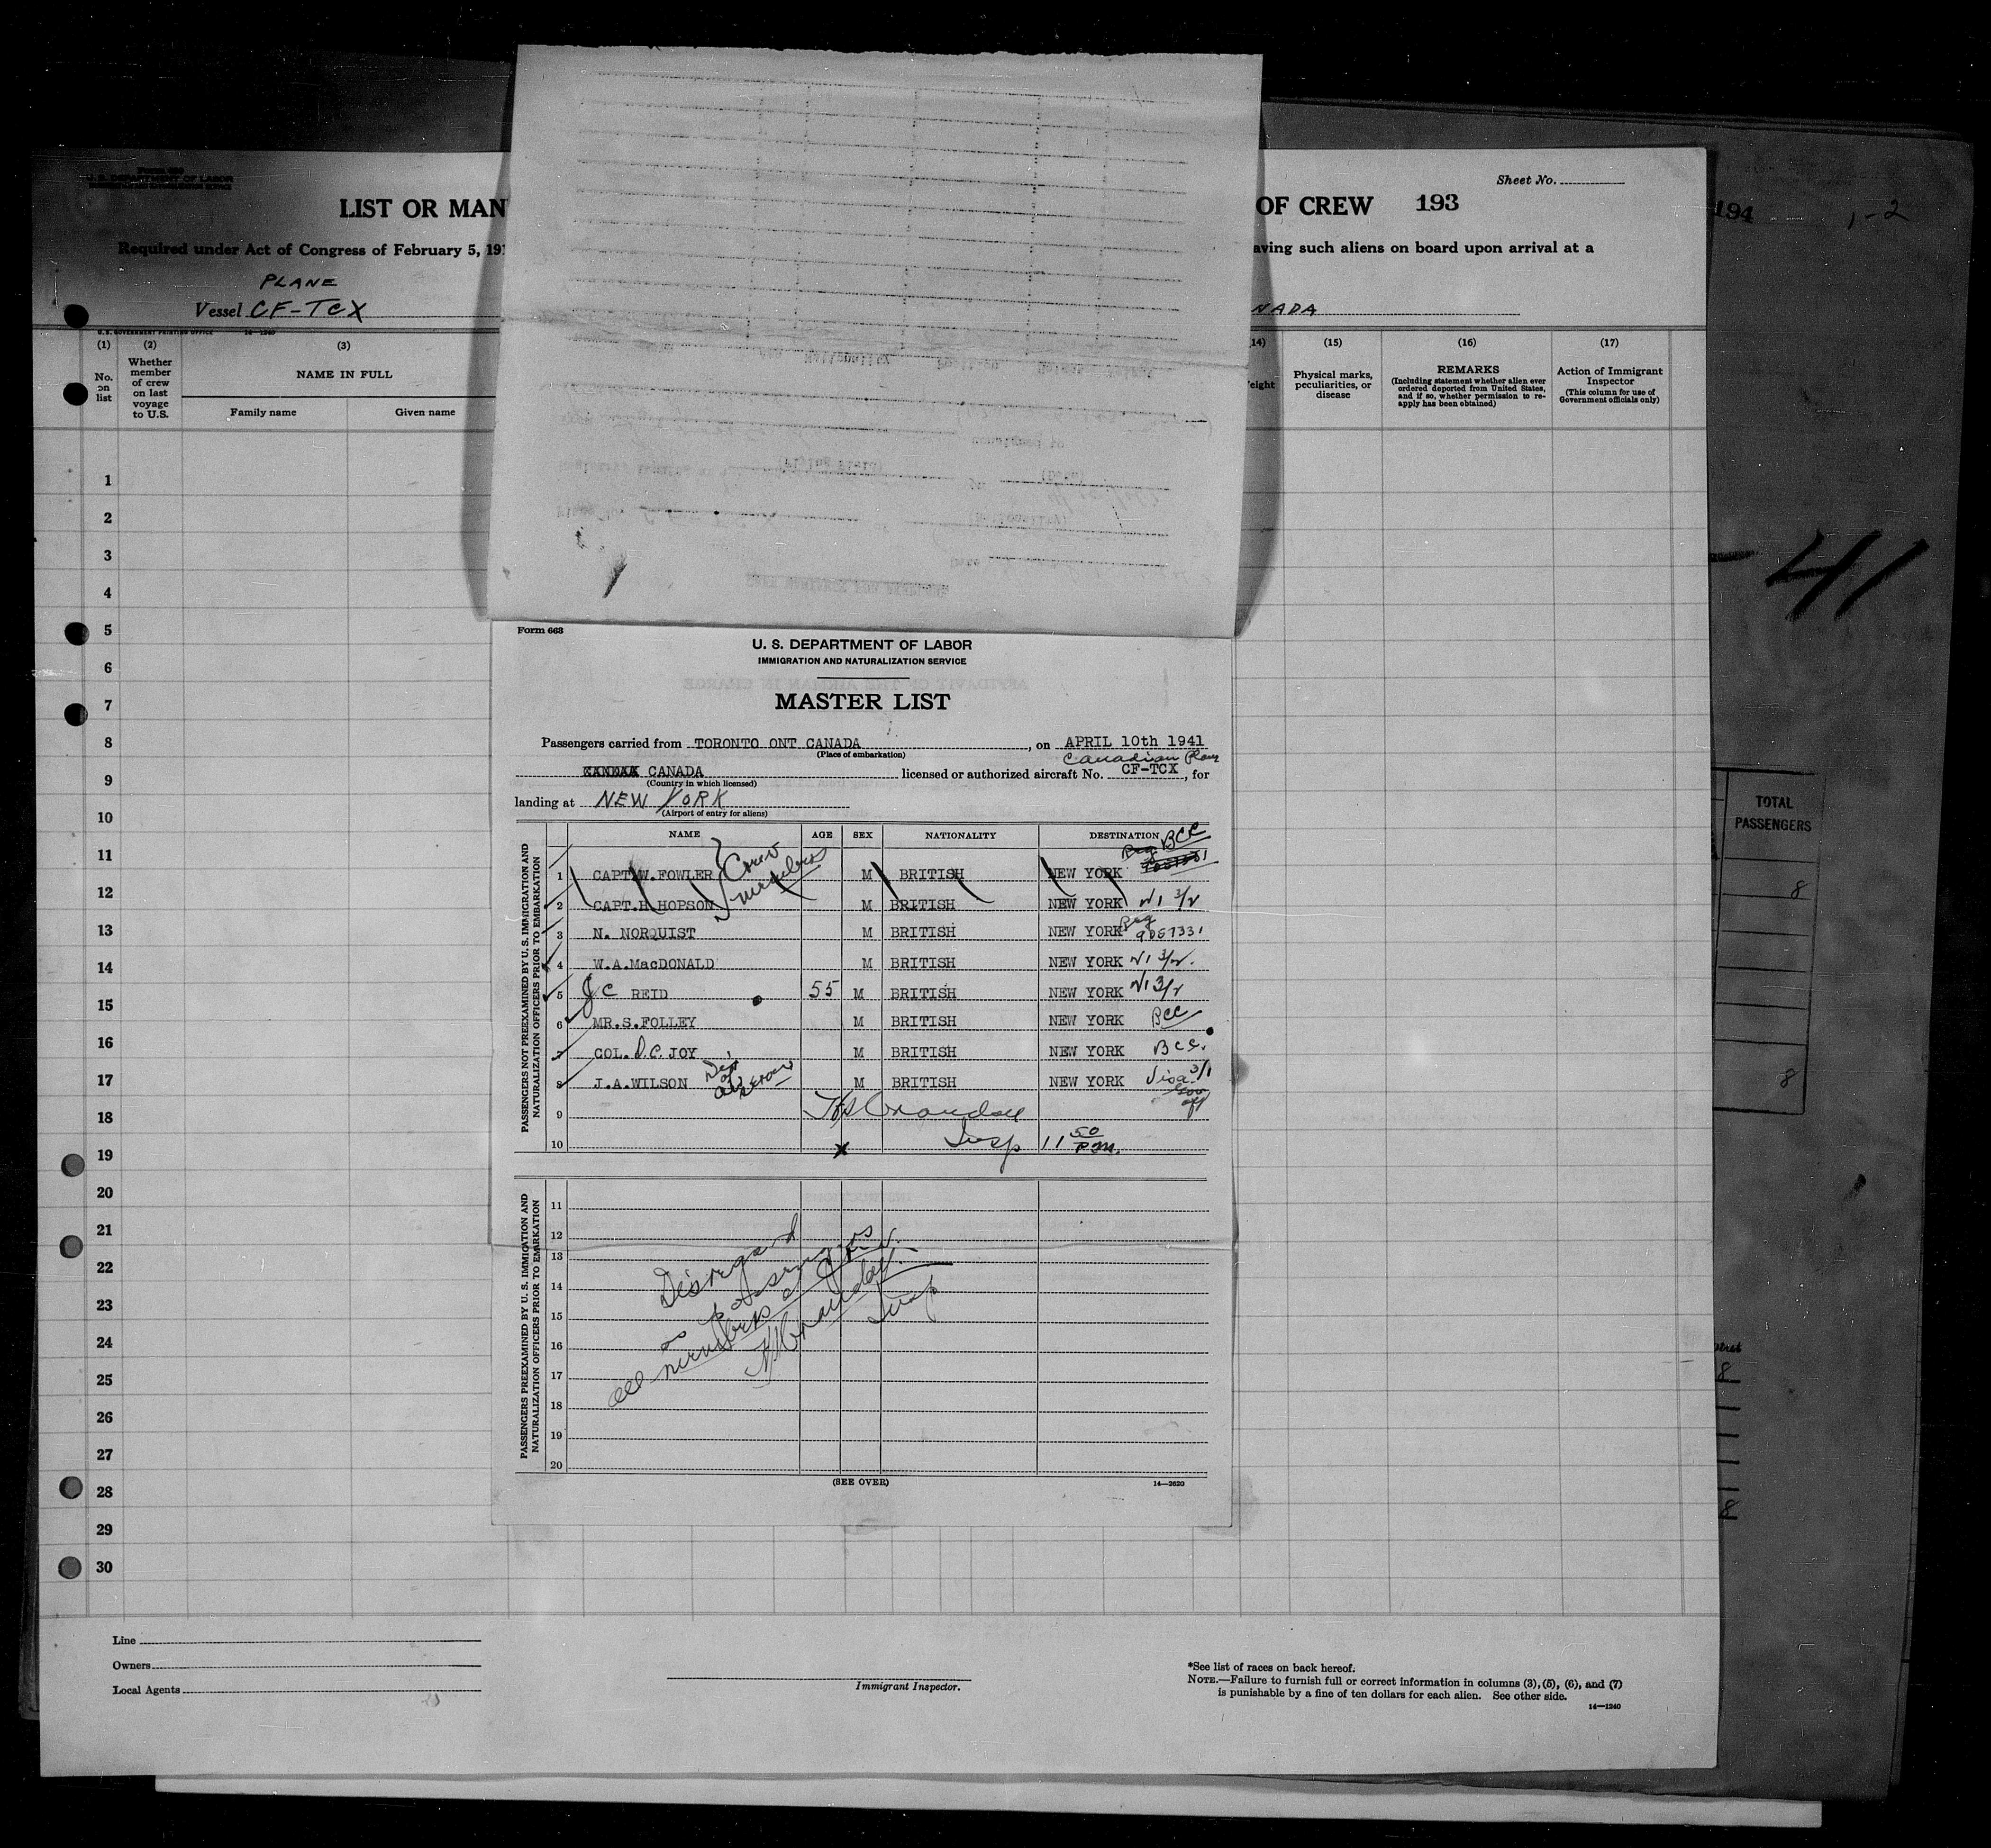 Form 680
U. S. DEPARTMENT OF LABOR
Sheet No.
LIST OR MAN
OF CREW 193
194
1-2
Required under Act of Congress of February 5, 191
aving such aliens on board upon arrival at a
PLANE
Vessel CF-TCX
NADA
U.S. GOVERNMENT PRINTING OFFICE 14-1240
(1) (2) (3) 14) (15) (16) (17)
No. on list
Whether member of crew on last voyage to U.S.
NAME IN FULL
Family name Given name
eight
Physical marks, peculiarities, or disease
REMARKS
(Including statement whether alien ever ordered deported from United States, and if so, whether permission to reapply has been obtained)
Action of Immigrant Inspector
(This column for use of Government officials only)
1
2
3
4
5
6
7
8
9
10
11
12
13
14
15
16
17
18
19
20
21
22
23
24
25
26
27
28
29
30
41
TOTAL PASSENGERS
8
8
8
8
Form 663
U. S. DEPARTMENT OF LABOR
IMMIGRATION AND NATURALIZATION SERVICE
MASTER LIST
Passengers carried from TORONTO ONT CANADA, on APRIL 10th 1941
(Place of embarkation)
Canadian Plane
CANADA licensed or authorized aircraft No. CF-TCX, for
(Country in which licensed)
landing at NEW YORK
(Airport of entry for aliens)
NAME AGE SEX NATIONALITY DESTINATION
PASSENGERS NOT PREEXAMINED BY U. S. IMMIGRATION AND NATURALIZATION OFFICERS PRIOR TO EMBARKATION
Crew members
BCC
1 CAPT.W.FOWLER M BRITISH NEW YORK
2 CAPT.H.HOPSON M BRITISH NEW YORK V1 3/2
3 N. NORQUIST M BRITISH NEW YORK Reg 9057331
4 W.A.MacDONALD M BRITISH NEW YORK V1 3/2.
5 J C REID 55 M BRITISH NEW YORK V1 3/2
6 MR.S.FOLLEY M BRITISH NEW YORK BCC
7 COL. D.C. JOY M BRITISH NEW YORK BCC.
8 J.A.WILSON M BRITISH NEW YORK Visa 3/1
9 Crandall
10 Insp 11 50 P.M.
PASSENGERS PREEXAMINED BY U. S. IMMIGRATION AND NATURALIZATION OFFICERS PRIOR TO EMBARKATION
11
12
13
14
15
16
17
18
19
20
Disregard
as passengers
all members of crew.
Crandall
Insp
(SEE OVER)
14-2620
Line
Owners
Local Agents
Immigrant Inspector.
*See list of races on back hereof.
NOTE.—Failure to furnish full or correct information in columns (3), (5), (6), and (7)
is punishable by a fine of ten dollars for each alien. See other side.
14-1240